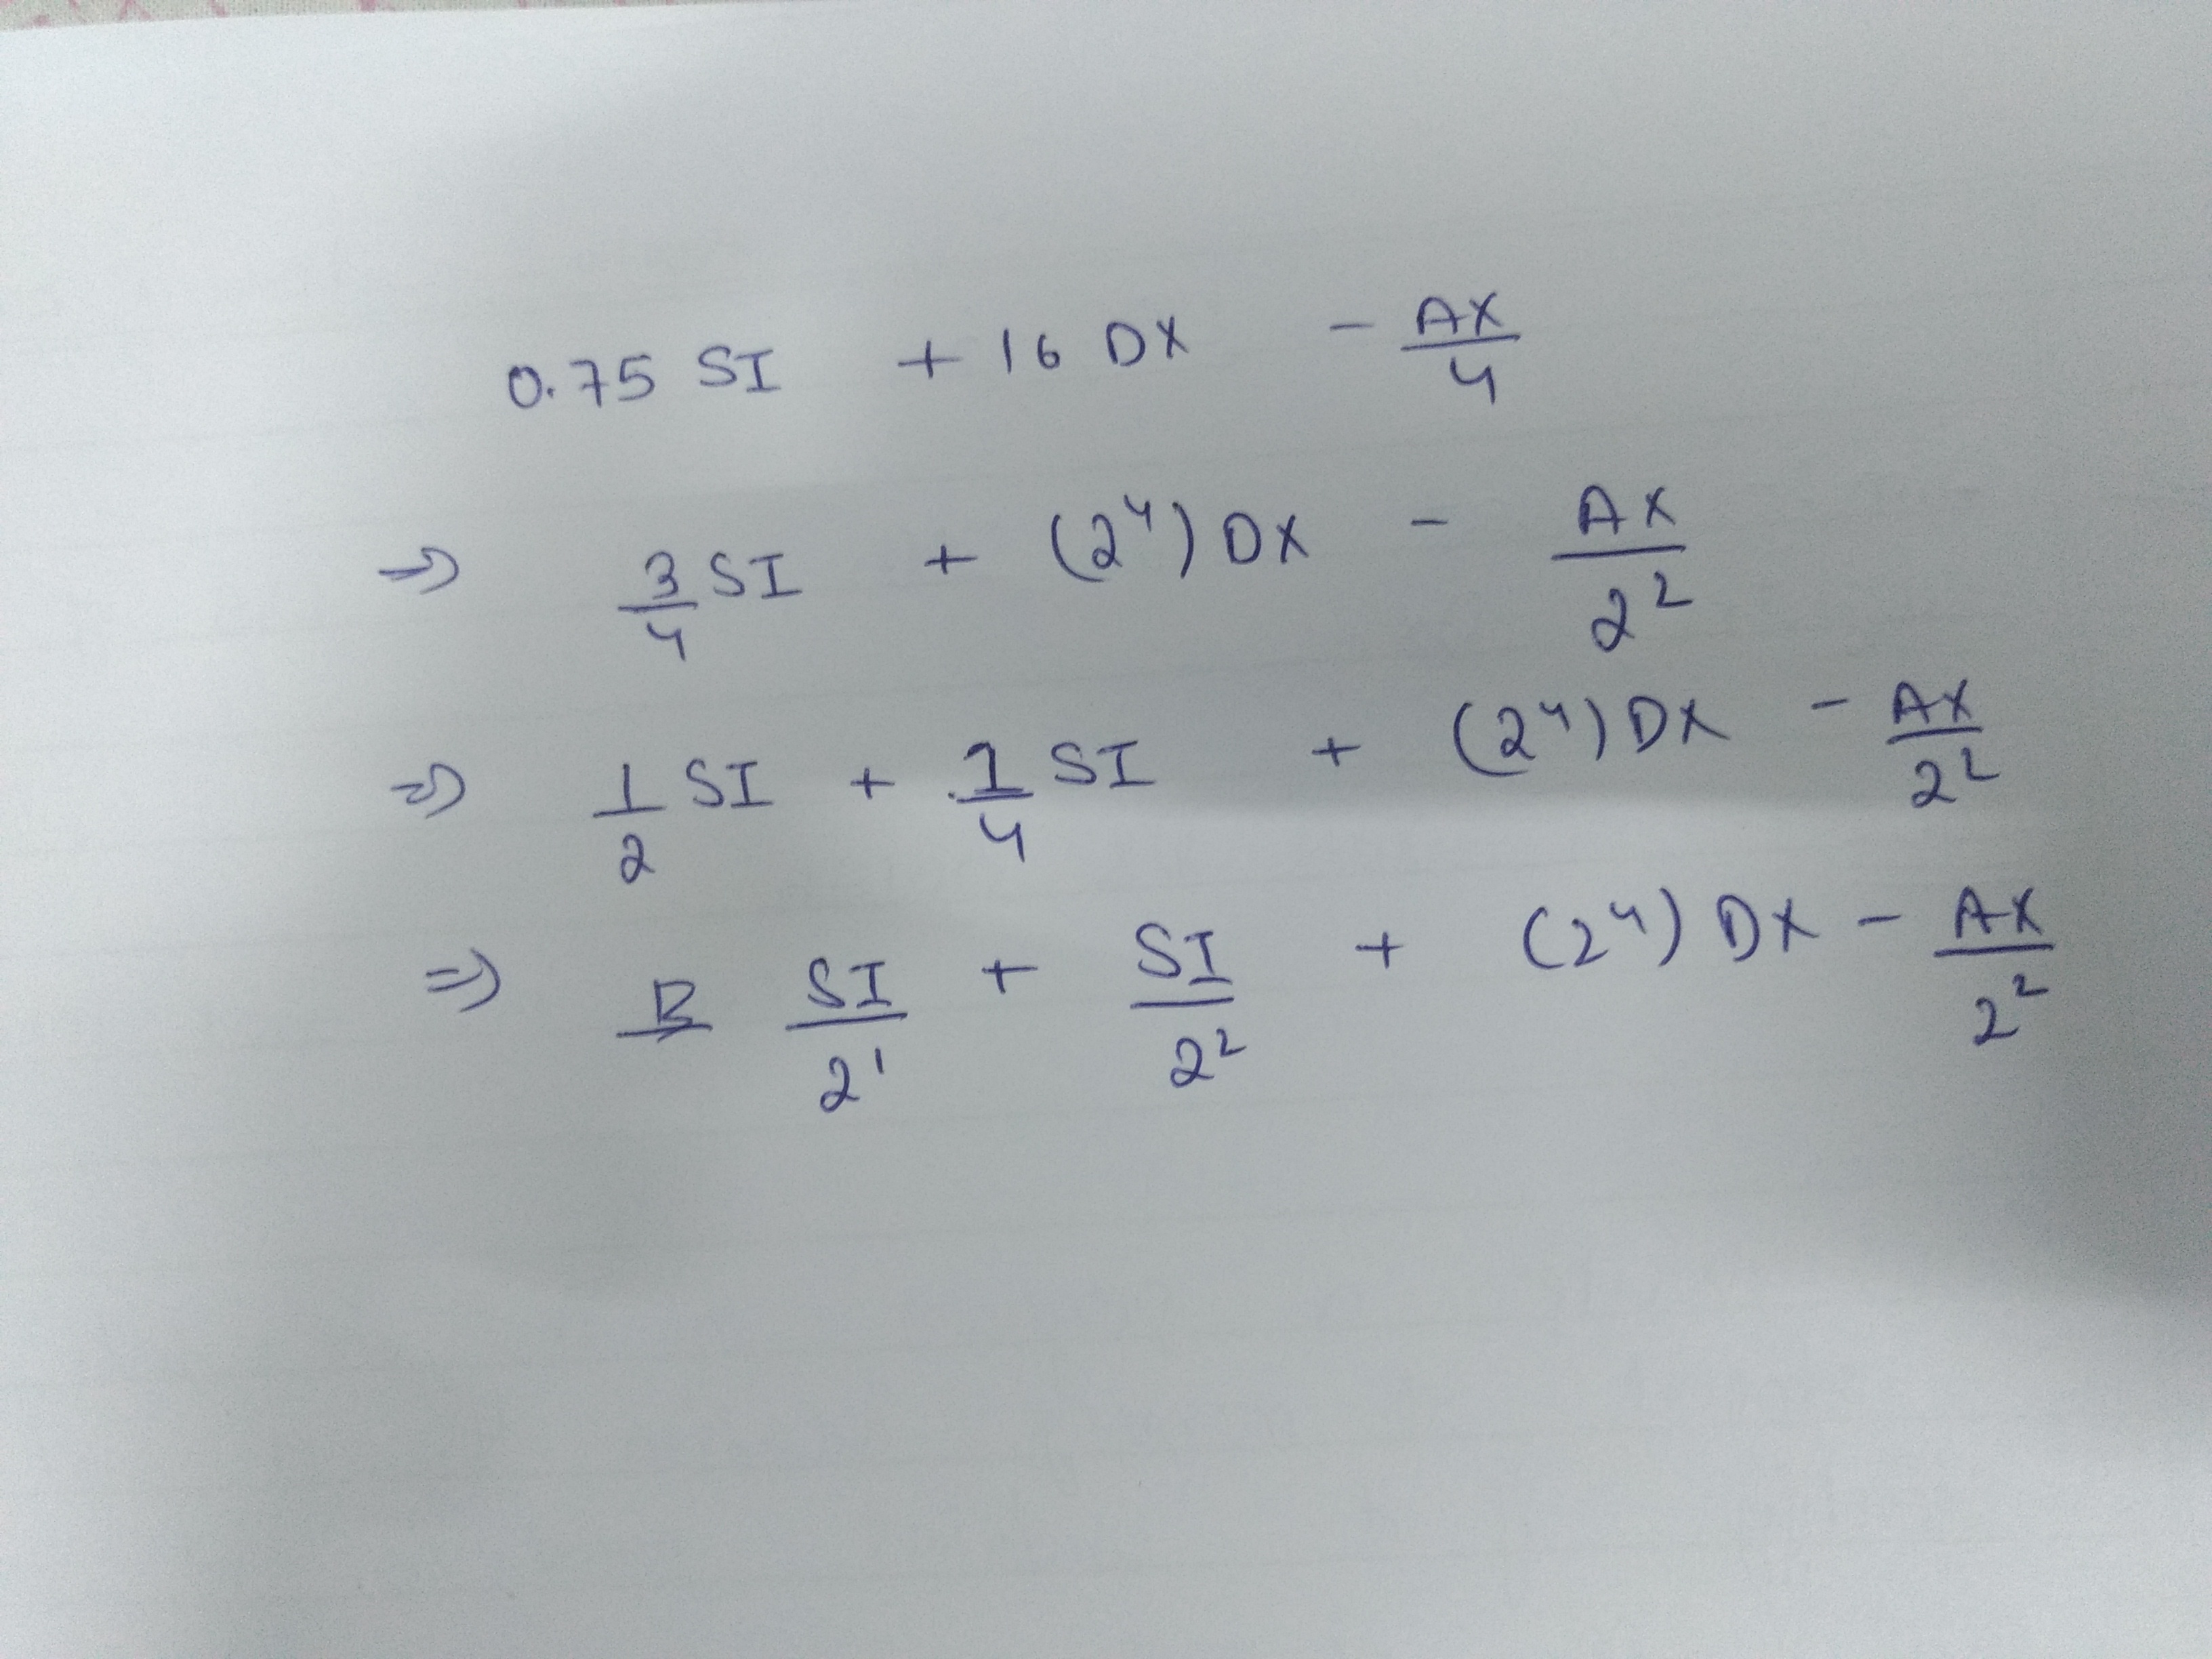 0.75 SI + 16 DX - AX/4
⇒ 3/4 SI + (2^4) DX - AX/2^2
⇒ 1/2 SI + 1/4 SI + (2^4) DX - AX/2^2
⇒ SI/2^1 + SI/2^2 + (2^4) DX - AX/2^2